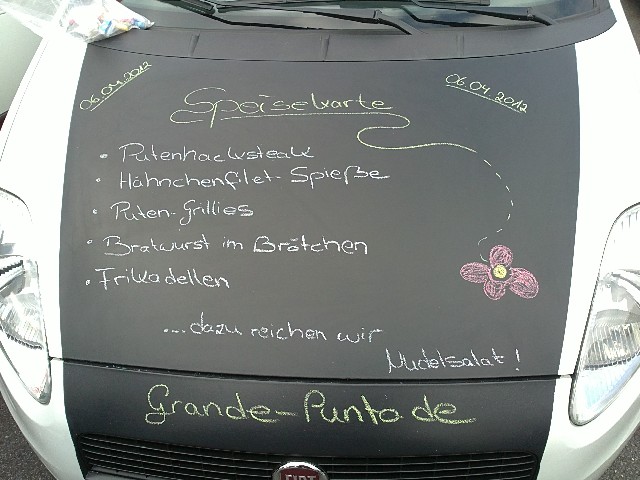 06.04.2012
06.04.2012
Speisekarte
• Putenhacksteak
• Hähnchenfilet-Spieße
• Puten-Grillies
• Bratwurst im Brötchen
• Frikadellen
...dazu reichen wir
Nudelsalat!
Grande-Punto.de
FIAT